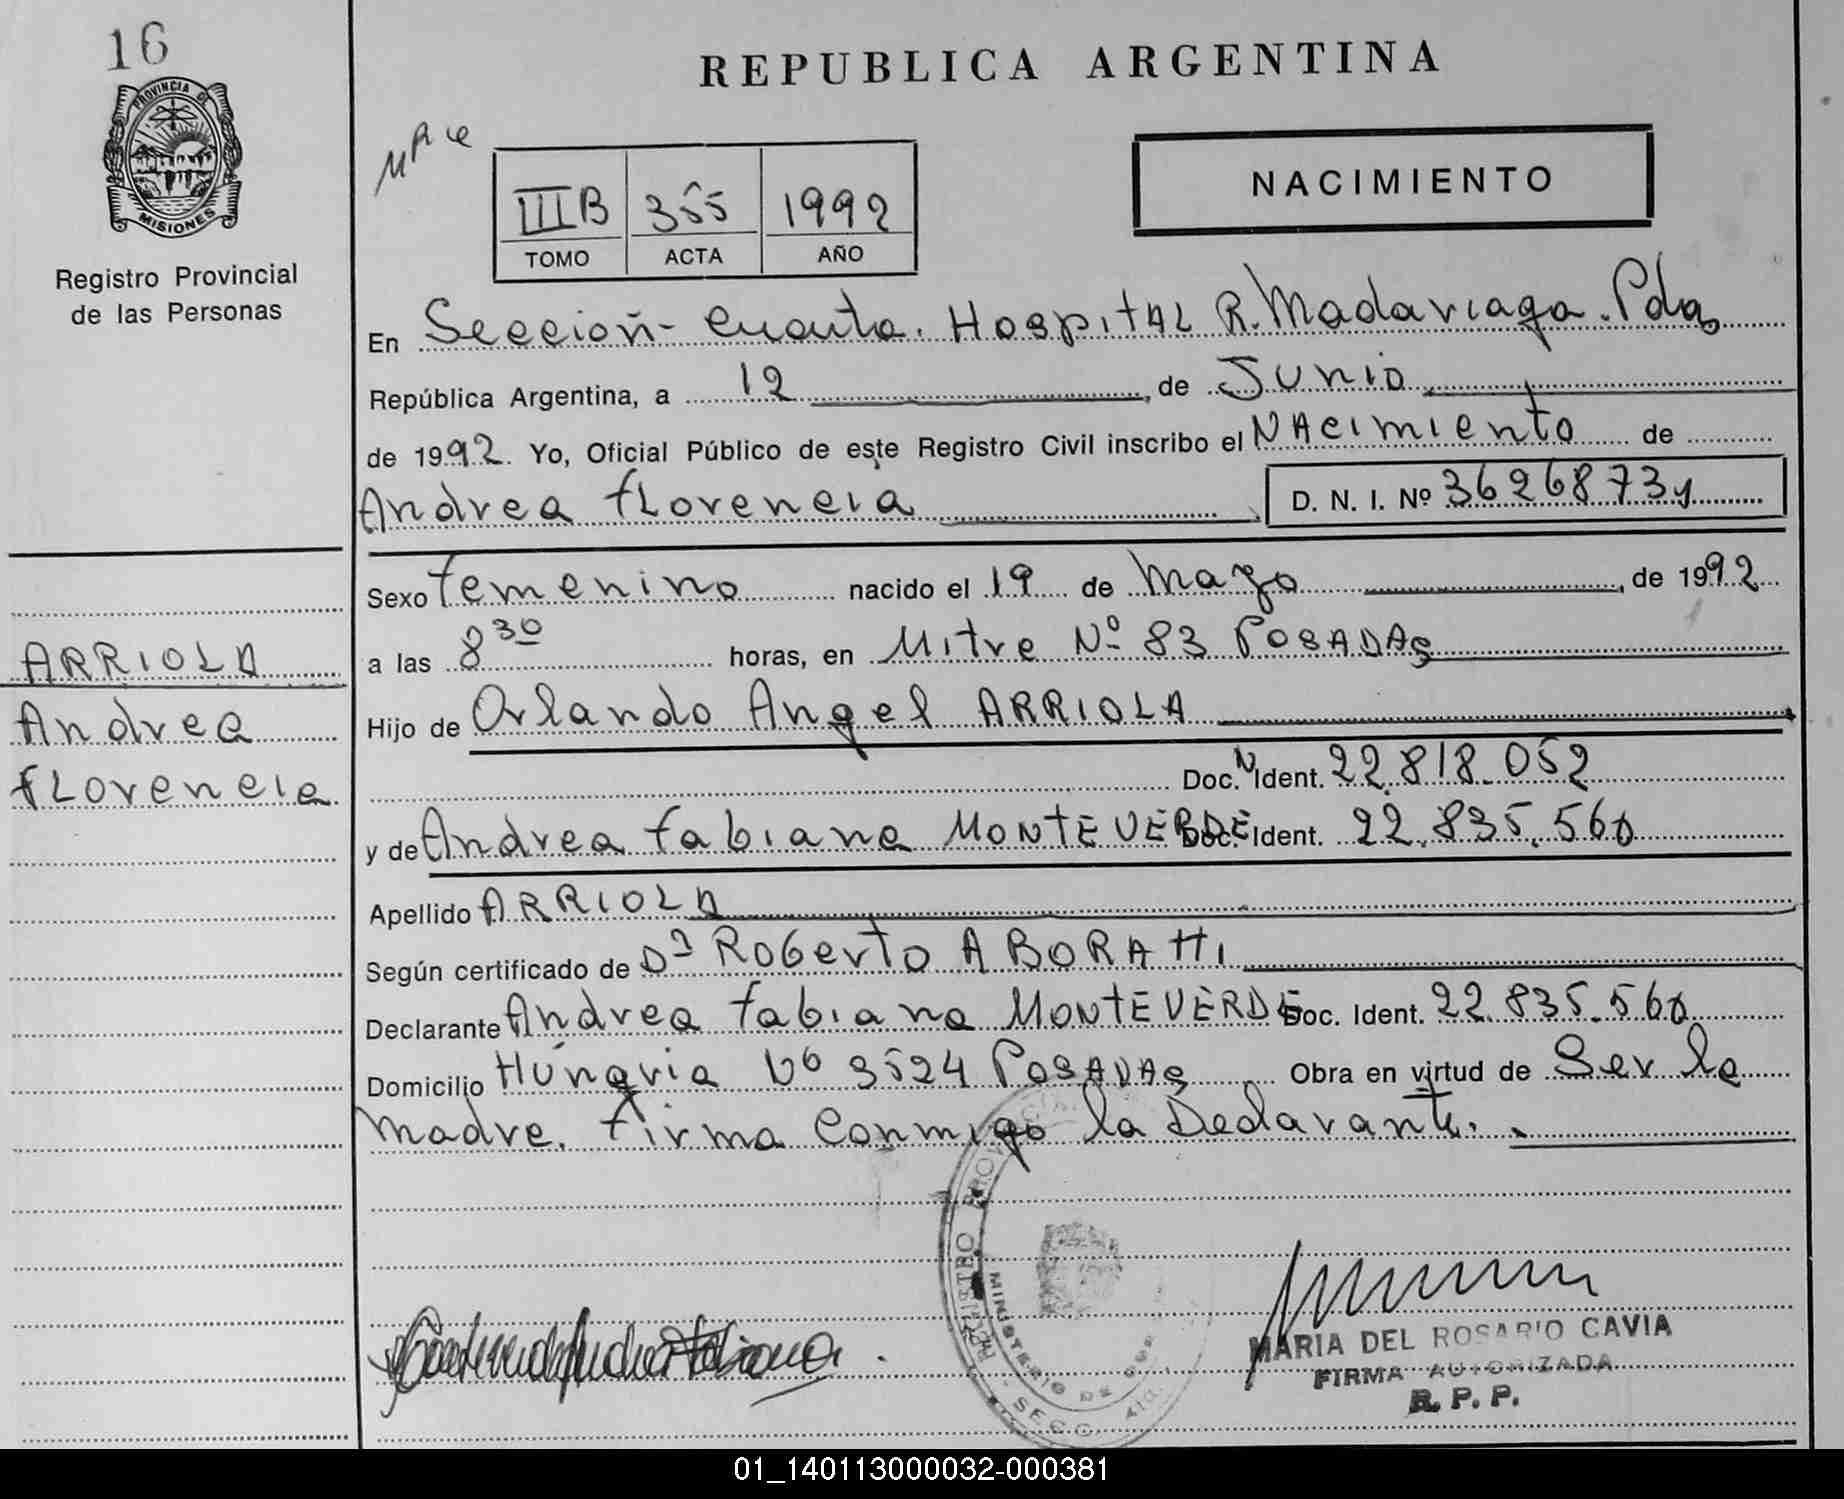 16
PROVINCIA DE
MISIONES
Registro Provincial
de las Personas
REPUBLICA ARGENTINA
NACIMIENTO
IIIB 355 1992
TOMO ACTA AÑO
En Sección - Cuarta. Hospital R. Madariaga. Pdas
República Argentina, a 12 de Junio
de 1992. Yo, Oficial Público de este Registro Civil inscribo el NAcimiento de
Andrea fLorencia D. N. I. Nº
Sexo femenino nacido el 19 de Mayo de 1992
a las 8 30 horas, en Mitre Nº 83 POSADAS
Hijo de Orlando Angel ARRIOLA
Doc. Ident. 22.818.052
y de Andrea fabiana MONTEVERDE Doc. Ident. 22.835.560
Apellido ARRIOLA
Según certificado de Dr RoGerto A BORAtti
Declarante Andrea fabiana MONTEVERDE Doc. Ident. 22.835.560
Domicilio Hungria Nº 3524 POSADAS Obra en virtud de Ser la
madre. firma conmigo la Declarante.
ARRIOLA
Andrea
fLorencia
MARIA DEL ROSARIO CAVIA
FIRMA AUTORIZADA
R. P. P.
01_140113000032-000381